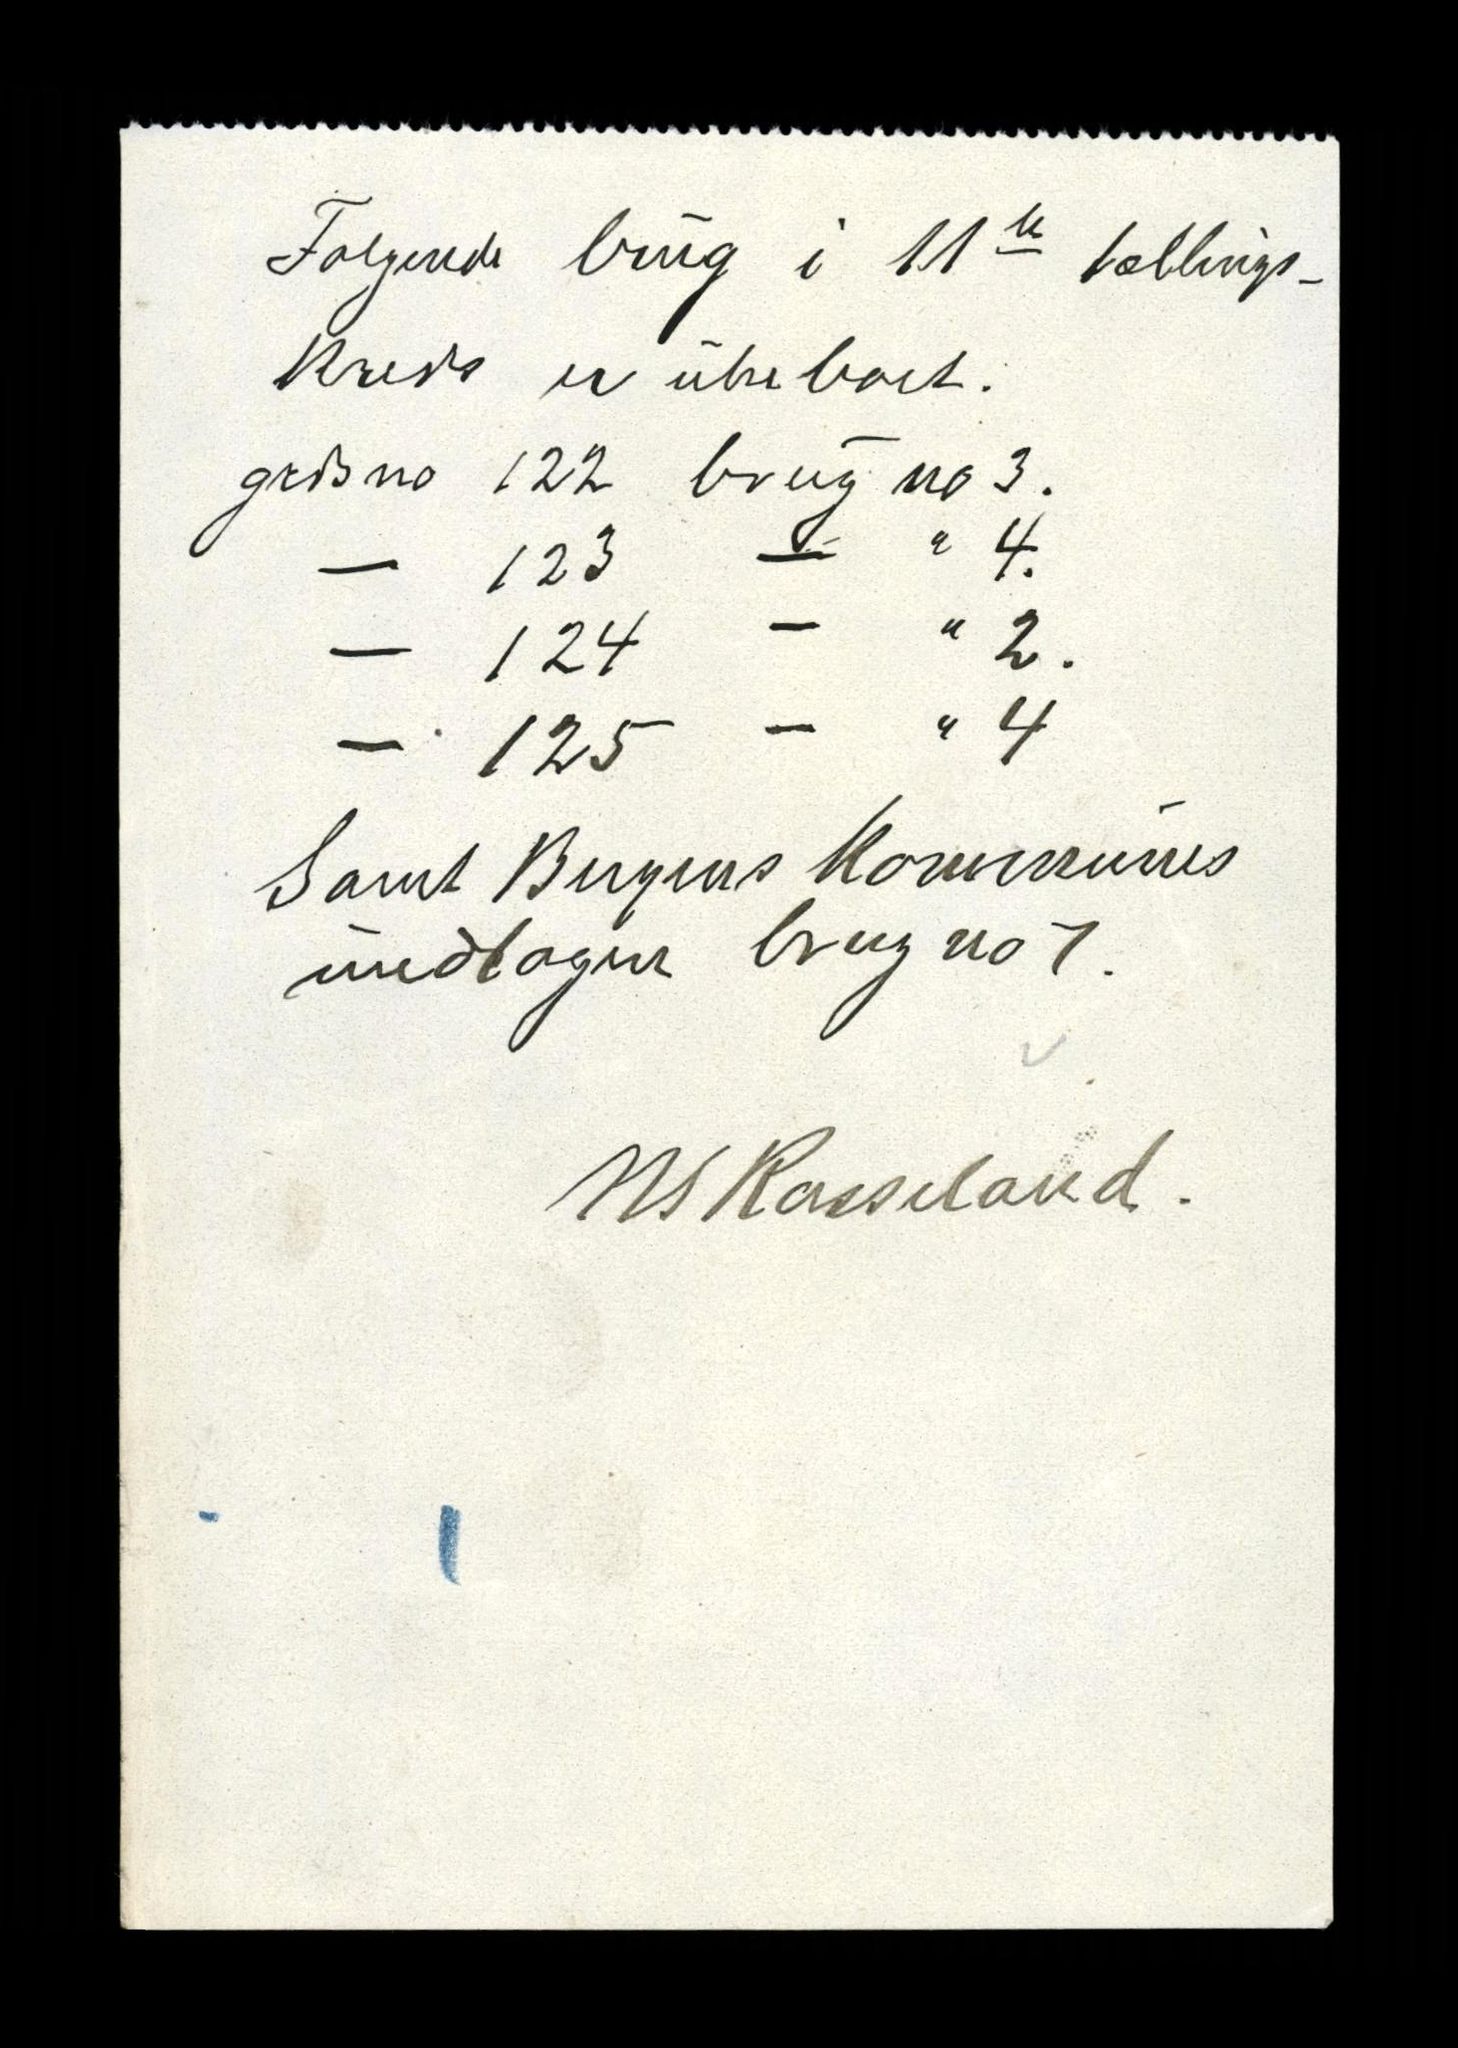 Følgende brug i 11te tællings-
kreds er ubeboet.
grdsno 122 brug no 3.
— 123 — " 4.
— 124 — " 2.
— 125 — " 4
Samt Bergens Kommunes
brug no 1.
NS Rosseland.